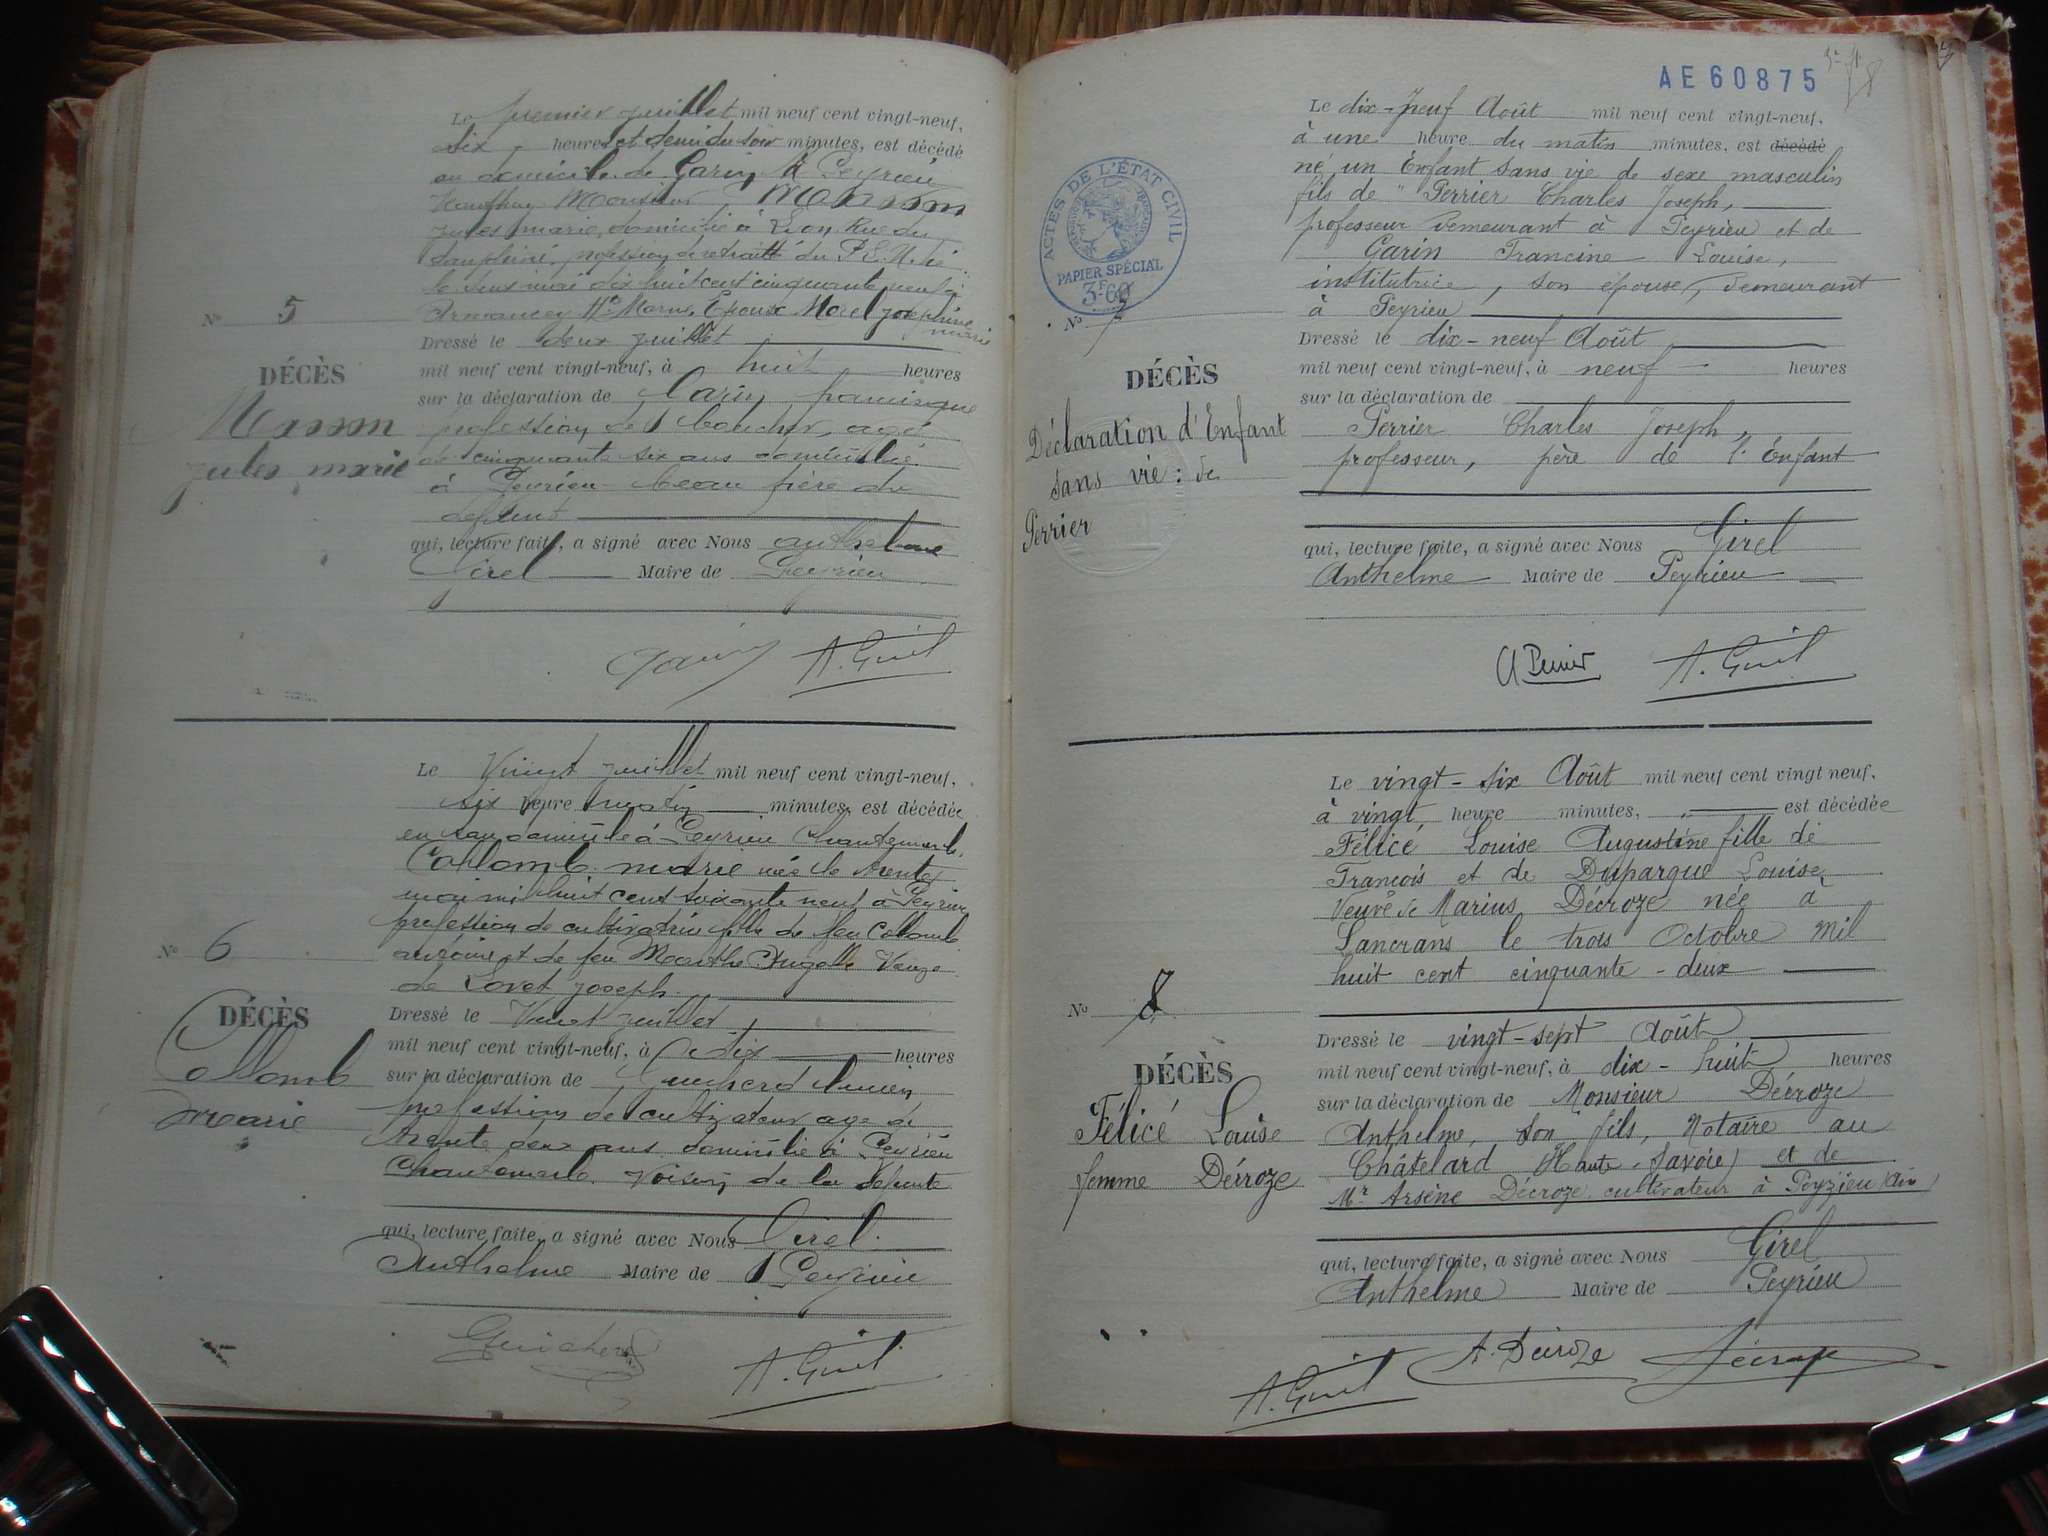 Le premier juillet mil neuf cent vingt-neuf,
six heures et demi du soir minutes, est décédé
au domicile de Garin, à Peyrieu
Monsieur Masson
jules marie, domicilié à Lion Rue du
dauphiné, profession de retraité du P.L.M. né
le deux mai dix huit cent cinquante neuf à
Hte Marne, Epoux Morel josephine
marie
No 5
DÉCÈS
Masson
jules marie
Dressé le deux juillet
mil neuf cent vingt-neuf, à huit heures
sur la déclaration de Garin
profession de boucher, agé
de cinquante six ans domicilié
à Peyrieu beau frère du
defunt
qui, lecture faite, a signé avec Nous anthelme
Girel Maire de Peyrieu
Garin A. Girel
Le Vingt juillet mil neuf cent vingt-neuf,
six heure matin minutes, est décédée
en son domicile à Peyrieu Chantemerle
Collomb marie née le trente
mai mil huit cent soixante neuf à Peyrieu
profession de cultivatrice fille de feu Collomb
et de feu Marthe Veuve
de Lovet joseph
No 6
DÉCÈS
Collomb
marie
Dressé le Vingt juillet
mil neuf cent vingt-neuf, à dix heures
sur la déclaration de Guicherd
profession de cultivateur age de
trente deux ans domicilié à Peyrieu
Chantemerle voisin de la defunte
qui, lecture faite, a signé avec Nous Girel
Anthelme Maire de Peyrieu
Guicherd A. Girel
AE 60875
8
ACTES DE L'ÉTAT CIVIL
PAPIER SPÉCIAL
3F60
Le dix-neuf Août mil neuf cent vingt-neuf,
à une heure du matin minutes, est décédé
né un Enfant sans vie de sexe masculin
fils de Perrier Charles Joseph,
professeur demeurant à Peyrieu et de
Garin Francine Louise,
institutrice, son épouse, demeurant
à Peyrieu
No 7
DÉCÈS
Déclaration d'Enfant
sans vie: de
Perrier
Dressé le dix-neuf Août
mil neuf cent vingt-neuf, à neuf heures
sur la déclaration de
Perrier Charles Joseph,
professeur, père de l'Enfant
qui, lecture faite, a signé avec Nous Girel
Anthelme Maire de Peyrieu
C Perrier A. Girel
Le vingt-six Août mil neuf cent vingt neuf,
à vingt heure minutes, est décédée
Félicé Louise Augustine fille de
François et de Duparque Louise
Veuve de Marius Décroze née à
Lancrans le trois Octobre Mil
huit cent cinquante-deux
No 8
DÉCÈS
Félicé Louise
femme Décroze
Dressé le vingt-sept Août
mil neuf cent vingt-neuf, à dix-huit heures
sur la déclaration de Monsieur Décroze
Anthelme, son fils, Notaire au
Châtelard (Haute-Savoie) et de
Mr Arsène Décroze cultivateur à Peyzieu (Ain)
qui, lecture faite, a signé avec Nous Girel
Anthelme Maire de Peyrieu
A. Girel A. Décroze Décroze